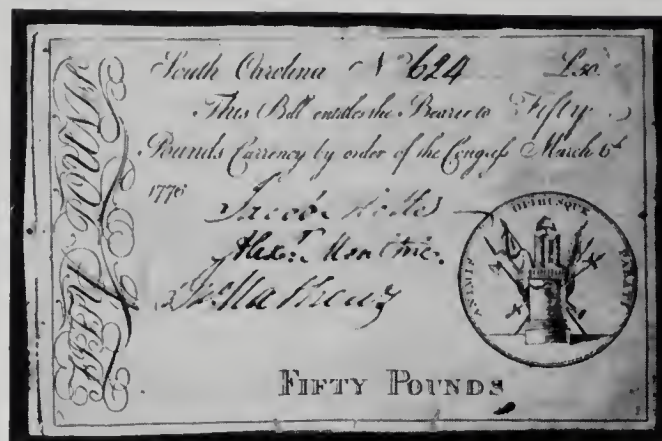 South Carolina No 624 £50.
This Bill entitles the Bearer to Fifty
Pounds Currency by order of the Congress March 6th
1776
Jacob
Alexr
FIFTY POUNDS
ANIMIS OPIBUSQUE PARATI
FIFTY POUNDS